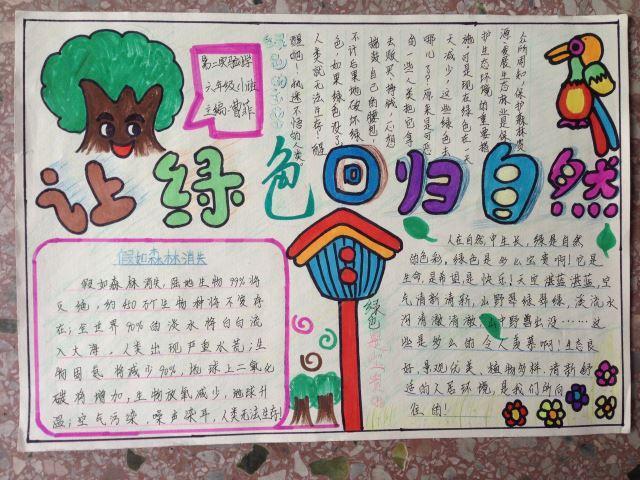 第二实验学
六年级小班
主编:曹菲
众所周知,保护森林资
源,发展生态林业是保
护生态环境的重要措
施,可是现在绿色在一天
天减少,这些绿色去
哪儿了?原来是可恶
的一些人类把它拿
去贩买,挣钱,心想
揣鼓自己的腰包,
不计后果地破坏绿
色,如果绿色没了,
人类就无法生存,醒
醒吧!执迷不悟的人类。
让绿色回归自然
假如森林消失
假如森林消失,陆地生物99%将
灭绝,约450万个生物种将不复存
在;全世界90%的淡水将白白流
入大海,人类出现严重水荒;生
物固氮将减少90%,地球上二氧化
碳将增加;生物放氧减少,地球升
温;空气污染,噪声杂耳,人类无法生存!
人在自然中生长,绿是自然
的色彩,绿色是多么宝贵啊!它是
生命,是希望是快乐!天空湛蓝湛蓝,空
气清新清新,山野翠绿翠绿,溪流水
河清澈清澈,山中野兽出没……这
些是多么的令人羡慕啊!生态良
好,景观优美,植物多样,清新舒
适的人居环境,是我们所向
往的!